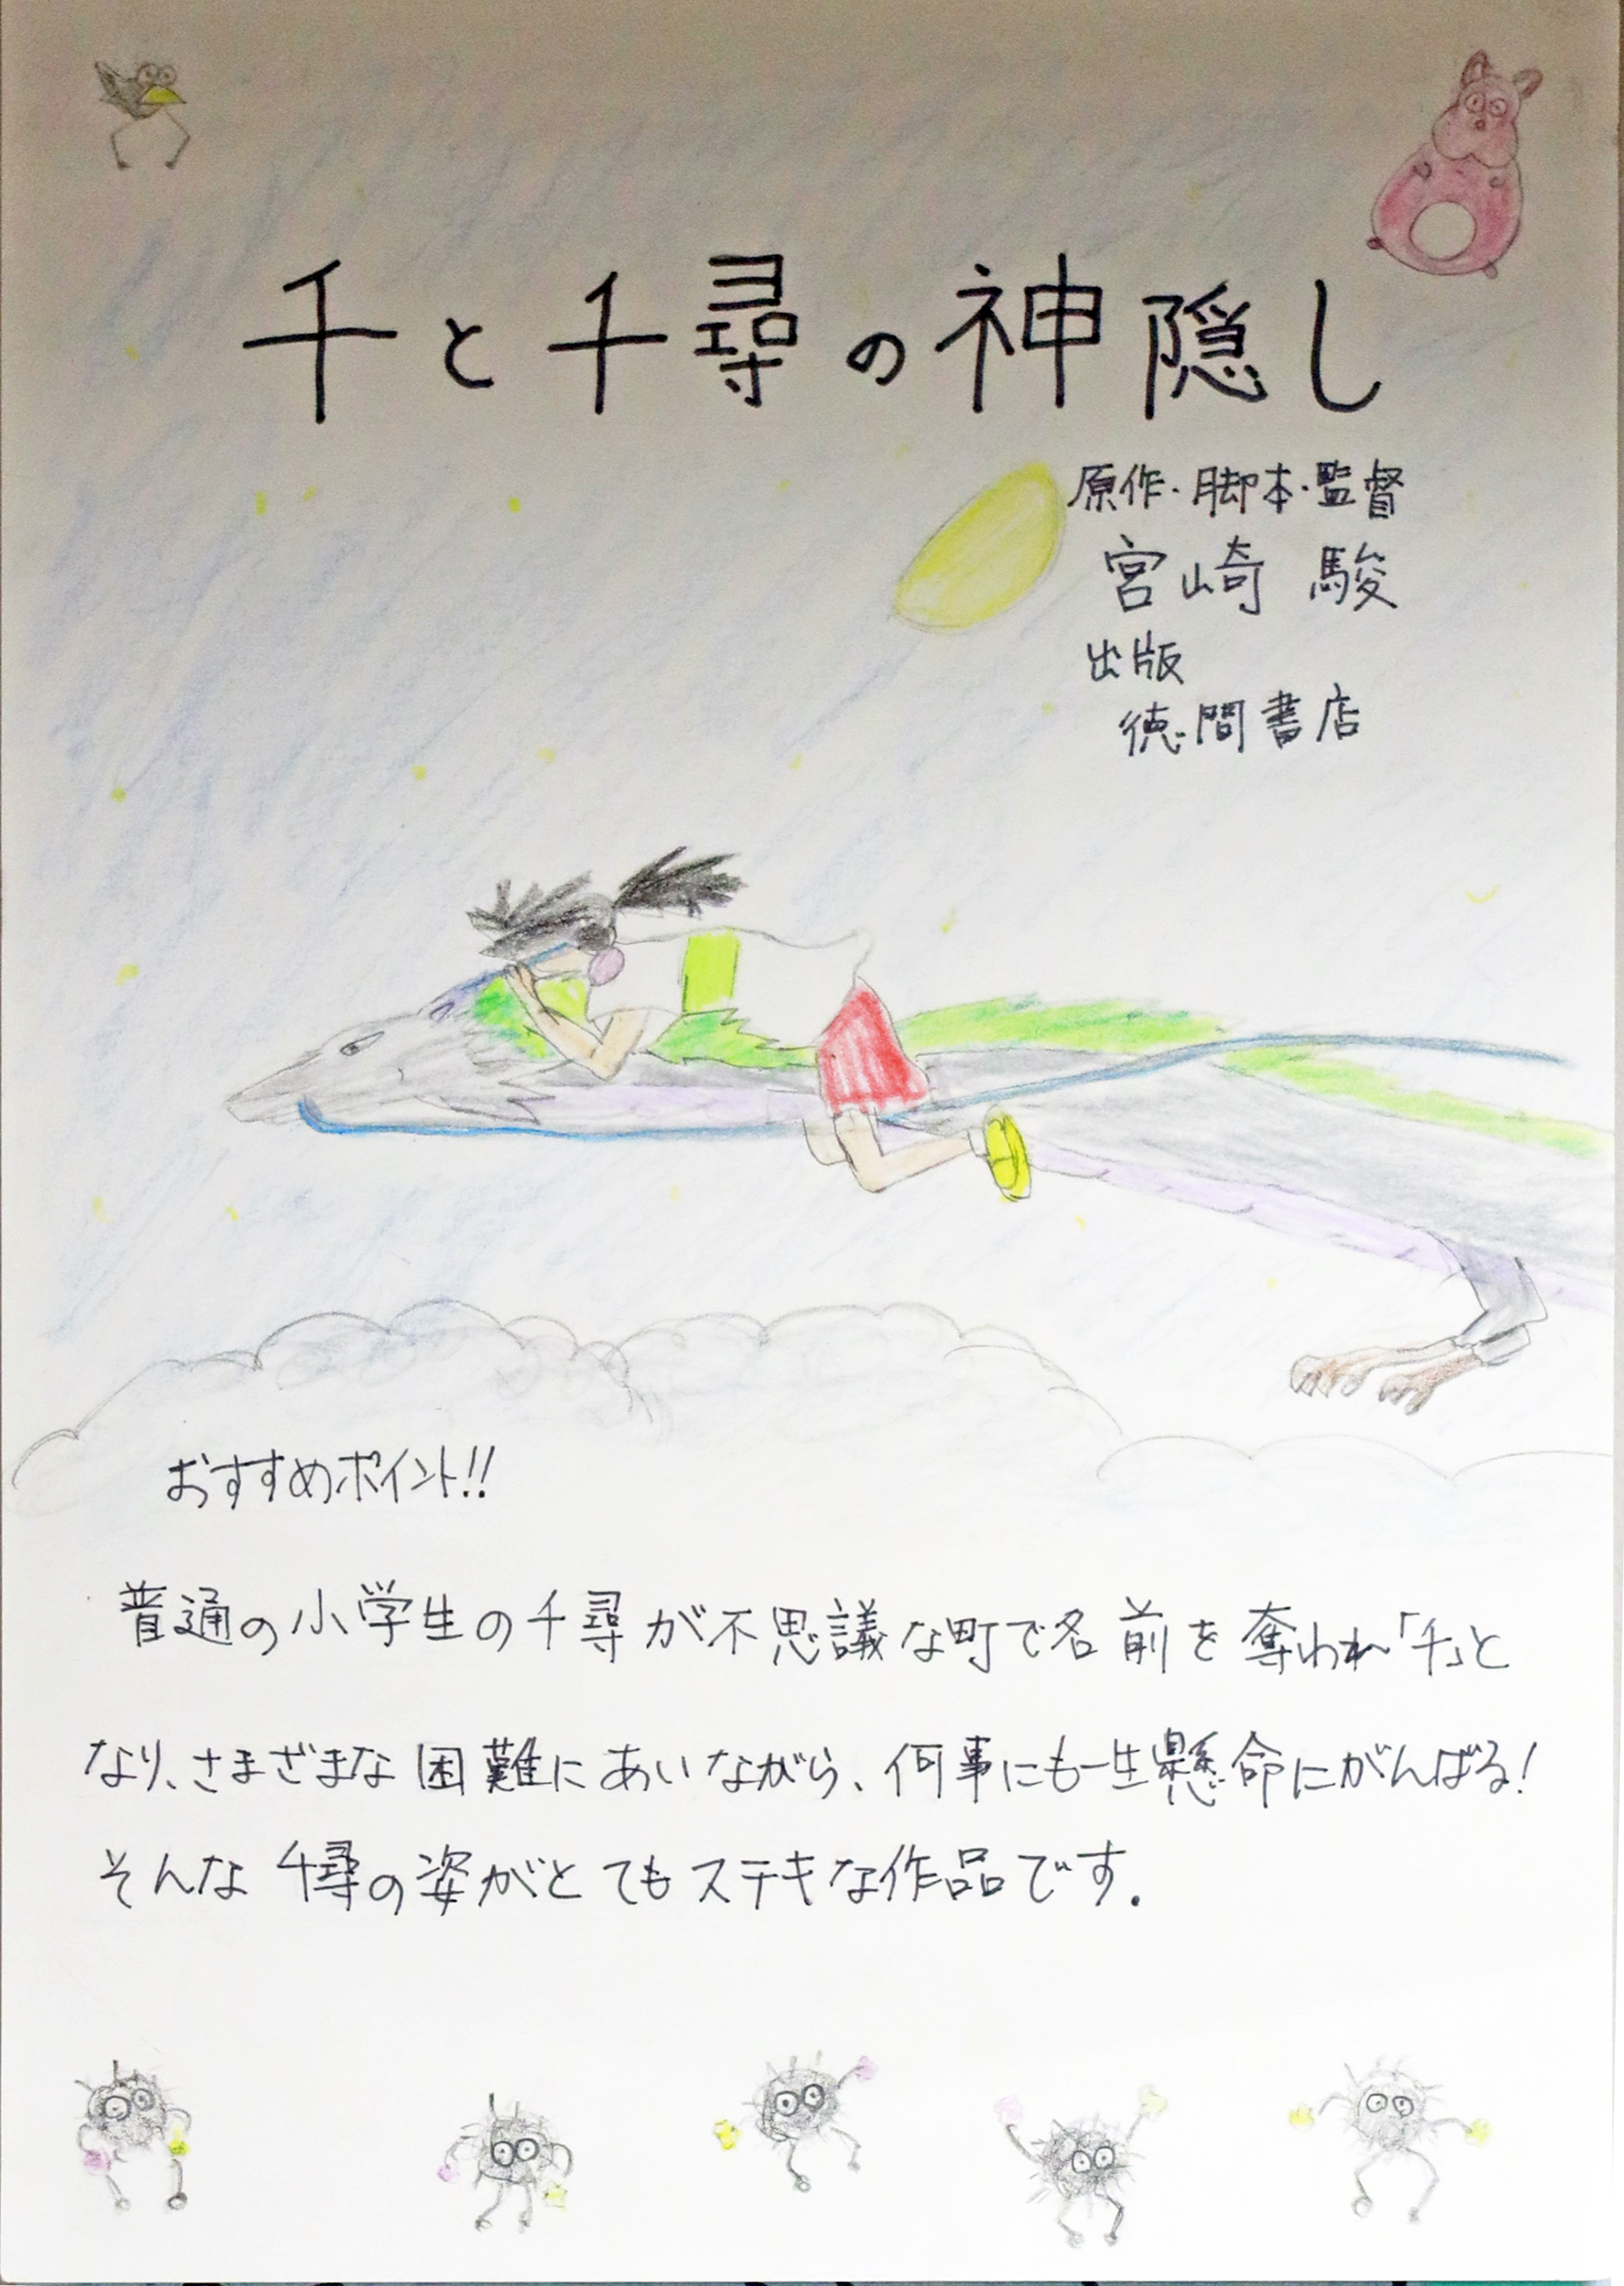 千と千尋の神隠し
原作・脚本・監督
宮崎 駿
出版
徳間書店
おすすめポイント!!
普通の小学生の千尋が不思議な町で名前を奪われ「千」と
なり、さまざまな困難にあいながら、何事にも一生懸命にがんばる!
そんな千尋の姿がとてもステキな作品です.